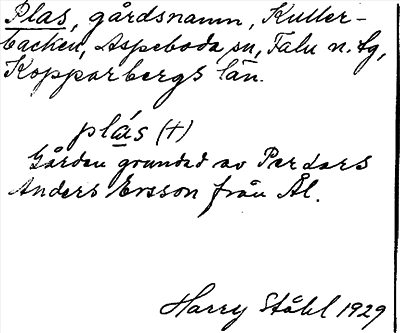 Plas, gårdsnamn, Kuller-
backen, Aspeboda sn, Falu n. tg,
Kopparbergs län.
plás (+)
Gården grundad av Per Lars
Anders Ersson från Ål.
Harry Ståhl 1929